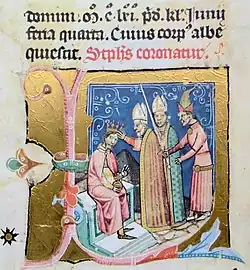 domini. m̊. c̊. lxi. p̄d. kl. Junij
feria quarta. Cuius corpꝰ albe
quiescit. Steph̄s coronatur.